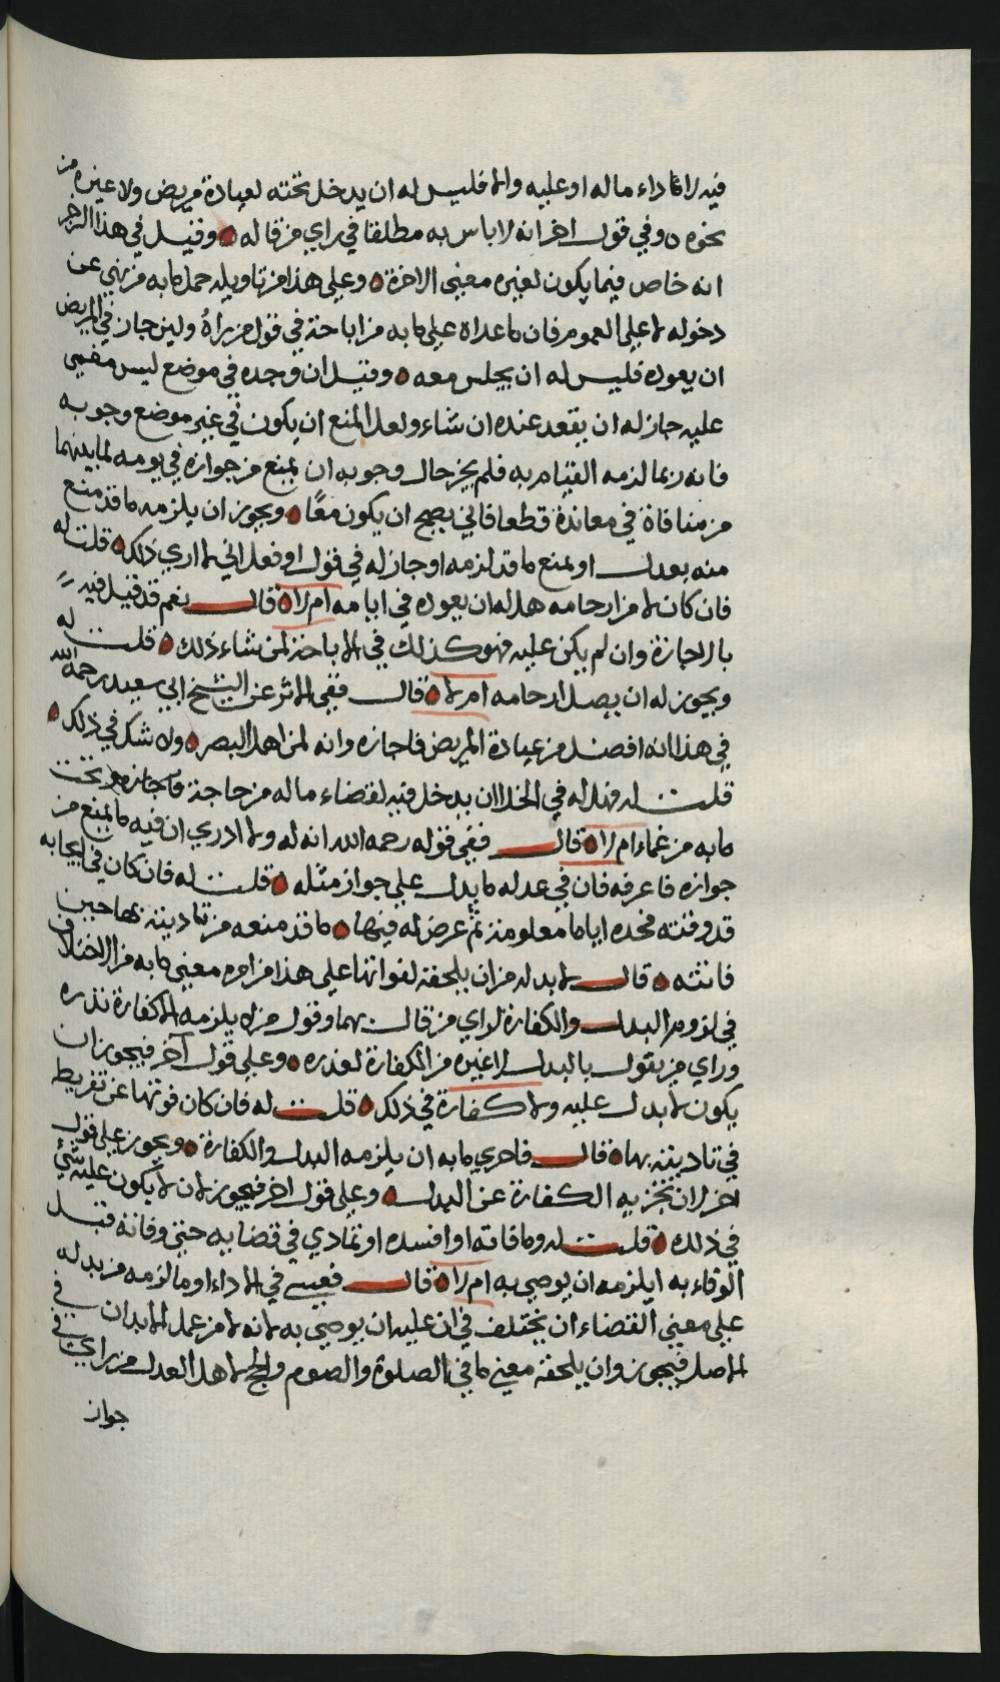 فيه لاداء ما له او عليه والا فليس له ان يدخل تحته لعيادة مريض ولا غيره من
نحوه وفي قول اخر انه لا باس به مطلقا في راي من قاله وقيل في هذا الزجر
انه خاص فيما يكون لغير معنى الاخرة وعلى هذا من تاويله حمل ما به من نهي عن
دخوله لا على العموم فان ما عداه على ما به من اباحة في قول من يراهُ ولين جاز في المريض
ان يعوده فليس له ان يجلس معه وقيل ان وجده في موضع ليس مغمى
عليه جاز له ان يقعد عنده ان شاء ولعل المنع ان يكون في غير موضع وجوبه
فانه ربما لزمه القيام به فلم يجز حال وجوبه ان يمنع من جوازه في يومه لما بينهما
من منافاة في معاندة قطعا فاني يصح ان يكون معًا ويجوز ان يلزمه ما قد منع
منه بعدل او يمنع ما قد لزمه او جاز له في قول او فعل اني لا ارى ذلك قلت له
فان كان من ارحامه هل له ان يعوده في ايامه ام لا قال نعم قد قيل فيه
بالاجازة وان لم يكن عليه فهو كذلك في الاباحة لمن شاء ذلك قلت له
ويجوز له ان يصل ارحامه ام لا قال ففي الاثر عن الشيخ ابي سعيد رحمه الله
في هذا انه افضل من عيادة المريض فاجازه وانه لمن اهل البصر ولا شك في ذلك
قلت له فهل له في الخلا ان يدخل فيه لقضاء ماله من حاجة فاجازه تحت
ما به من غماء ام لا قال ففي قوله رحمه الله انه له ولا ادري ان فيه ما يمنع من
جوازه فاعرفه فان في عدله ما يدل على جواز مثله قلت له فان كان في ايجابه
قد وقته فحده اياما معلومة ثم عرض له فيها ما قد منعه من تاديته بها حين
فاتته قال لا بد له من ان يلحقه لفواتها على هذا من امره معنى ما به من الاختلاف
في لزوم البدل والكفارة لراي من قال بهما وقول من لا يلزمه الا كفارة نذره
وراي من يقول بالبدل لا غيره من الكفارة لعذره وعلى قول آخر فيجوز ان
يكون لا بدل عليه ولا كفارة في ذلك قلت له فان كان فوتها عن تفريط
في تاديته بها قال فاحرى ما به ان يلزمه البدل والكفارة ويجوز على قول
اخر لان تجزيه الكفارة عن البدل وعلى قول اخر فيجوز لان لا يكون عليه شيء
في ذلك قلت له وما فاته او افسده او تمادي في قضايه حتى وفاته قبل
الوفاء به ايلزمه ان يوصي به ام لا قال فعسى في الاداء او ما لزمه من بدله
على معنى القضاء ان يختلف في ان عليه ان يوصي به لانه لا من عمل الابدان في
الاصل فيجوز وان يلحقه معنى ما في الصلوة والصوم والحج لاهل العدل من راي في
جواز